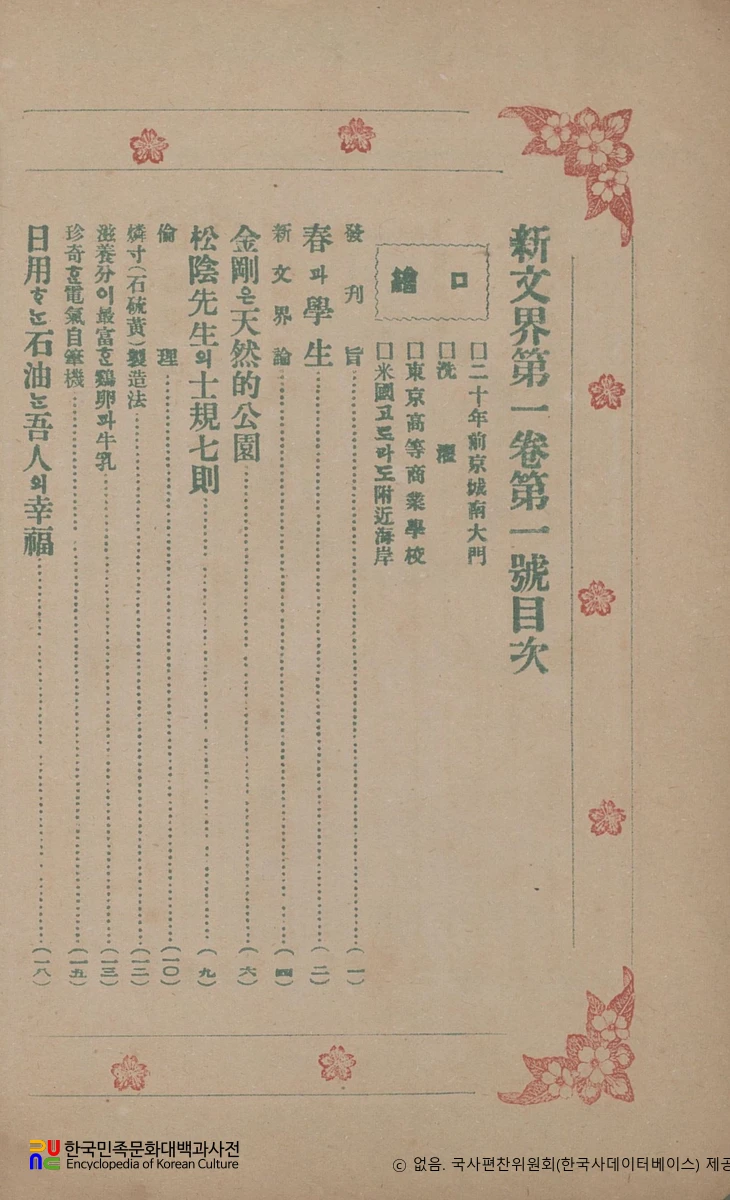 新文界第一卷第一號目次
口繪
□二十年前京城南大門
□洗濯
□東京高等商業學校
□米國고로라도附近海岸
發刊旨……(一)
春과學生……(二)
新文界論……(四)
金剛은天然的公園……(六)
松陰先生의士規七則……(九)
倫理……(一〇)
燐寸(石硫黃)製造法……(一二)
滋養分이最富ᄒᆞᆫ鷄卵과牛乳……(一三)
珍奇ᄒᆞᆫ電氣自 機……(一五)
日用ᄒᆞᄂᆞᆫ石油ᄂᆞᆫ吾人의幸福……(一八)
한국민족문화대백과사전
Encyclopedia of Korean Culture
ⓒ 없음. 국사편찬위원회(한국사데이터베이스) 제공